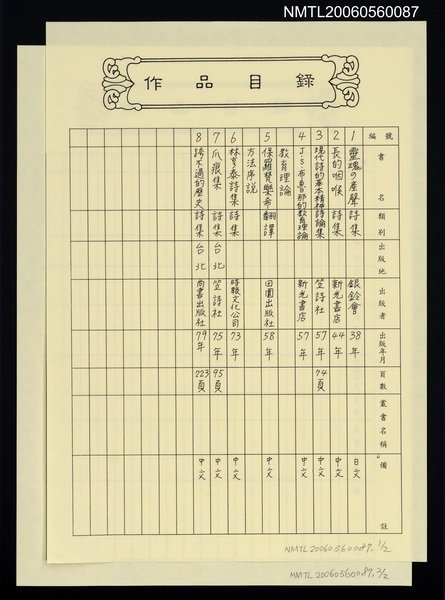 NMTL20060560087
作品目錄
編號 書名 類別 出版地 出版者 出版年月 頁數 叢書名稱 備註
1 靈魂の產聲 詩集 銀鈴會 38年 日文
2 長的咽喉 詩集 新光書店 44年 中文
3 現代詩的基本精神 詩論集 笠詩社 57年 94頁 中文
4 J.S.布魯那的教育理論 教育理論 新光書店 57年 中文
5 保羅梵樂希方法序說 翻譯 田園出版社 58年 中文
6 林亨泰詩集 詩集 時報文化公司 73年 中文
7 爪痕集 詩集 台北 笠詩社 75年 95頁 中文
8 跨不過的歷史 詩集 台北 尚書出版社 79年 223頁 中文
NMTL20060560087. 1/2
NMTL20060560087. 2/2